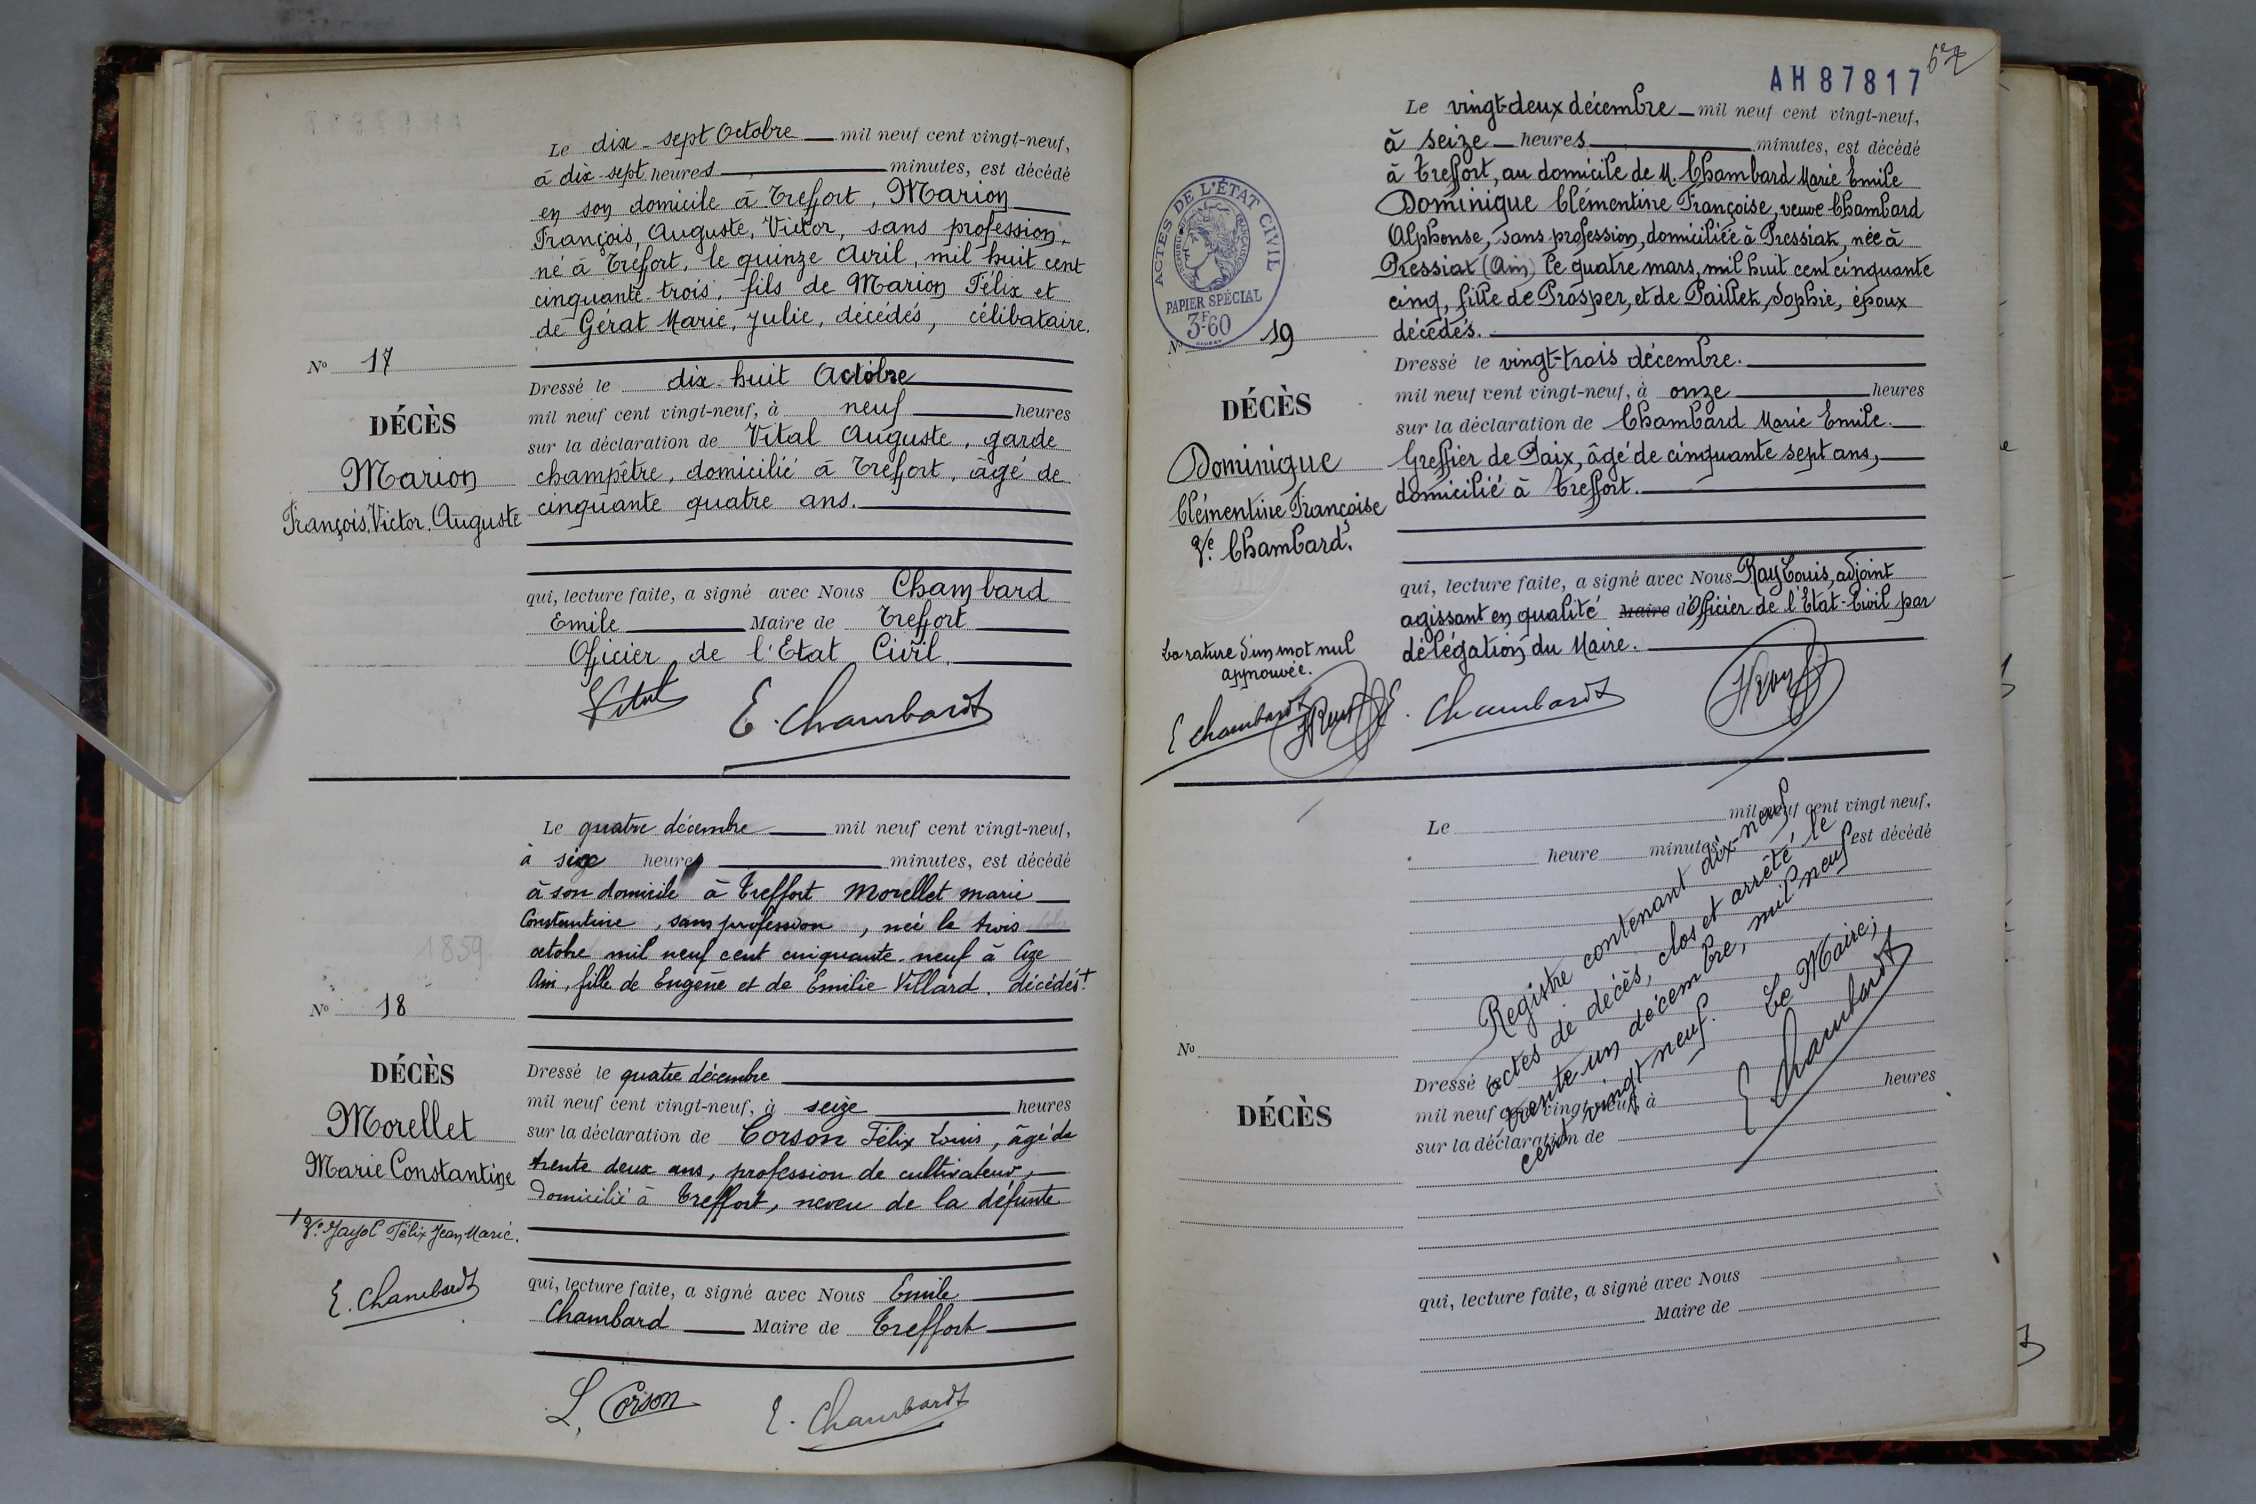 Le dix-sept Octobre mil neuf cent vingt-neuf,
à dix-sept heures minutes, est décédé
en son domicile à Treffort, Marion
François, Auguste, Victor, sans profession,
né à Treffort, le quinze Avril, mil huit cent
cinquante-trois, fils de Marion Félix et
de Gérat Marie, Julie, décédés, célibataire.
No 17
DÉCÈS
Marion
François, Victor, Auguste
Dressé le dix-huit Octobre
mil neuf cent vingt-neuf, à neuf heures
sur la déclaration de Vital Auguste, garde
champêtre, domicilié à Treffort, âgé de
cinquante quatre ans.
qui, lecture faite, a signé avec Nous Chambard
Emile Maire de Treffort
Officier de l'Etat Civil.
Vital E. Chambardt
Le quatre décembre mil neuf cent vingt-neuf,
à six heures minutes, est décédé
à son domicile à Treffort Morellet marie
Constantine, sans profession, née le trois
octobre mil neuf cent cinquante-neuf à Cize
Ain, fille de Eugène et de Emilie Villard. décédés +
1859
No 18
DÉCÈS
Morellet
Marie Constantine
+ Ve Jayol Félix Jean Marie.
E. Chambardt
Dressé le quatre décembre
mil neuf cent vingt-neuf, à seize heures
sur la déclaration de Corson Félix Louis, âgé de
trente deux ans, profession de cultivateur,
domicilié à Treffort, neveu de la défunte
qui, lecture faite, a signé avec Nous Emile
Chambard Maire de Treffort
L. Corson E. Chambardt
AH87817
Le vingt-deux décembre mil neuf cent vingt-neuf,
à seize heures minutes, est décédé
à Treffort, au domicile de M. Chambard Marie Emile
Dominique Clémentine Françoise, veuve Chambard
Alphonse, sans profession, domiciliée à Pressiat, née à
Pressiat (Ain) le quatre mars, mil huit cent cinquante
cinq, fille de Prosper, et de Paillet, Sophie, époux
décédés.
ACTES DE L'ÉTAT CIVIL
PAPIER SPÉCIAL
3F60
No 19
DÉCÈS
Dominique
Clémentine Françoise
Ve Chambard.
Dressé le vingt-trois décembre.
mil neuf cent vingt-neuf, à onze heures
sur la déclaration de Chambard Marie Emile.
Greffier de Paix, âgé de cinquante sept ans,
domicilié à Treffort.
qui, lecture faite, a signé avec Nous Ray Louis, adjoint
agissant en qualité Maire d'Officier de l'Etat-Civil par
délégation du Maire.
La rature d'un mot nul
approuvée.
E Chambardt E. Chambardt
Le mil neuf cent vingt neuf,
heure minutes, est décédé
No
DÉCÈS
Dressé le
mil neuf cent vingt-neuf, à heures
sur la déclaration de
qui, lecture faite, a signé avec Nous
Maire de
Registre contenant dix-neuf
actes de décès, clos et arrêté le
trente un décembre, mil neuf
cent vingt neuf. Le Maire,
E Chambardt